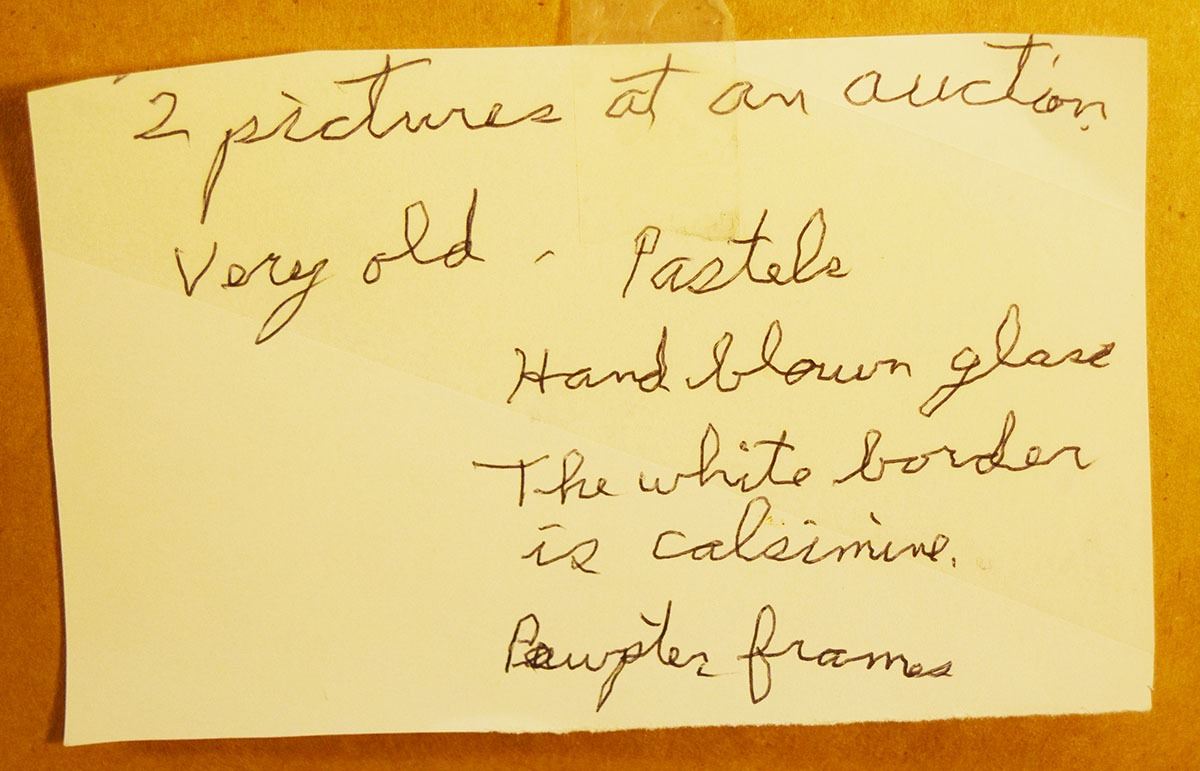 2 pictures at an auction
Very old - Pastels
Hand blown glass
The white border
is calsimine.
Pewpter frames